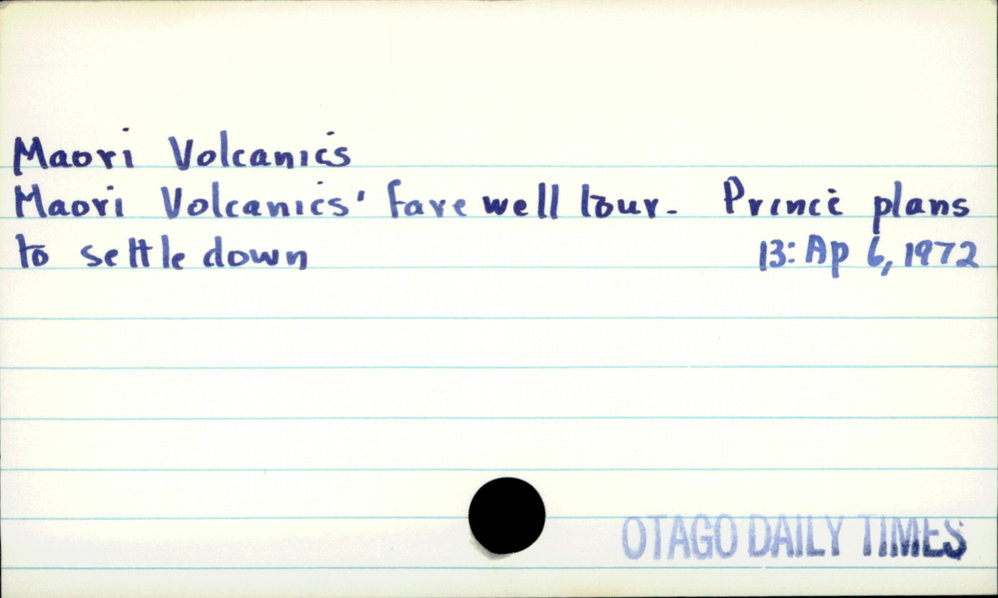 Maori Volcanics
Maori Volcanics' farewell tour. Prince plans
to settle down 13: Ap 6, 1972
OTAGO DAILY TIMES